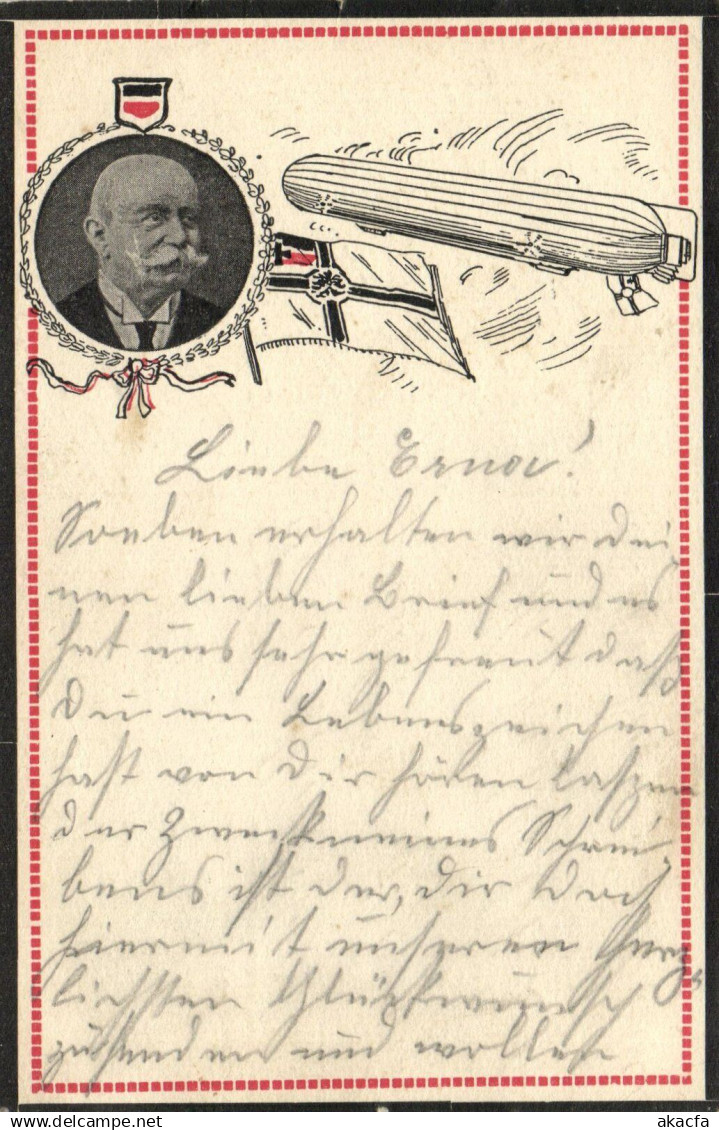 Liebe Erna!
Soeben erhalten wir dei-
nen lieben Brief und es
hat uns sehr gefreut daß
Du ein Lebenszeichen
hast von Dir hören laßen
der Zweck meines Schrei-
bens ist der, dir doch
hiermit unseren herz-
lichsten Glückwunsch
zusenden und wollen
akacfa